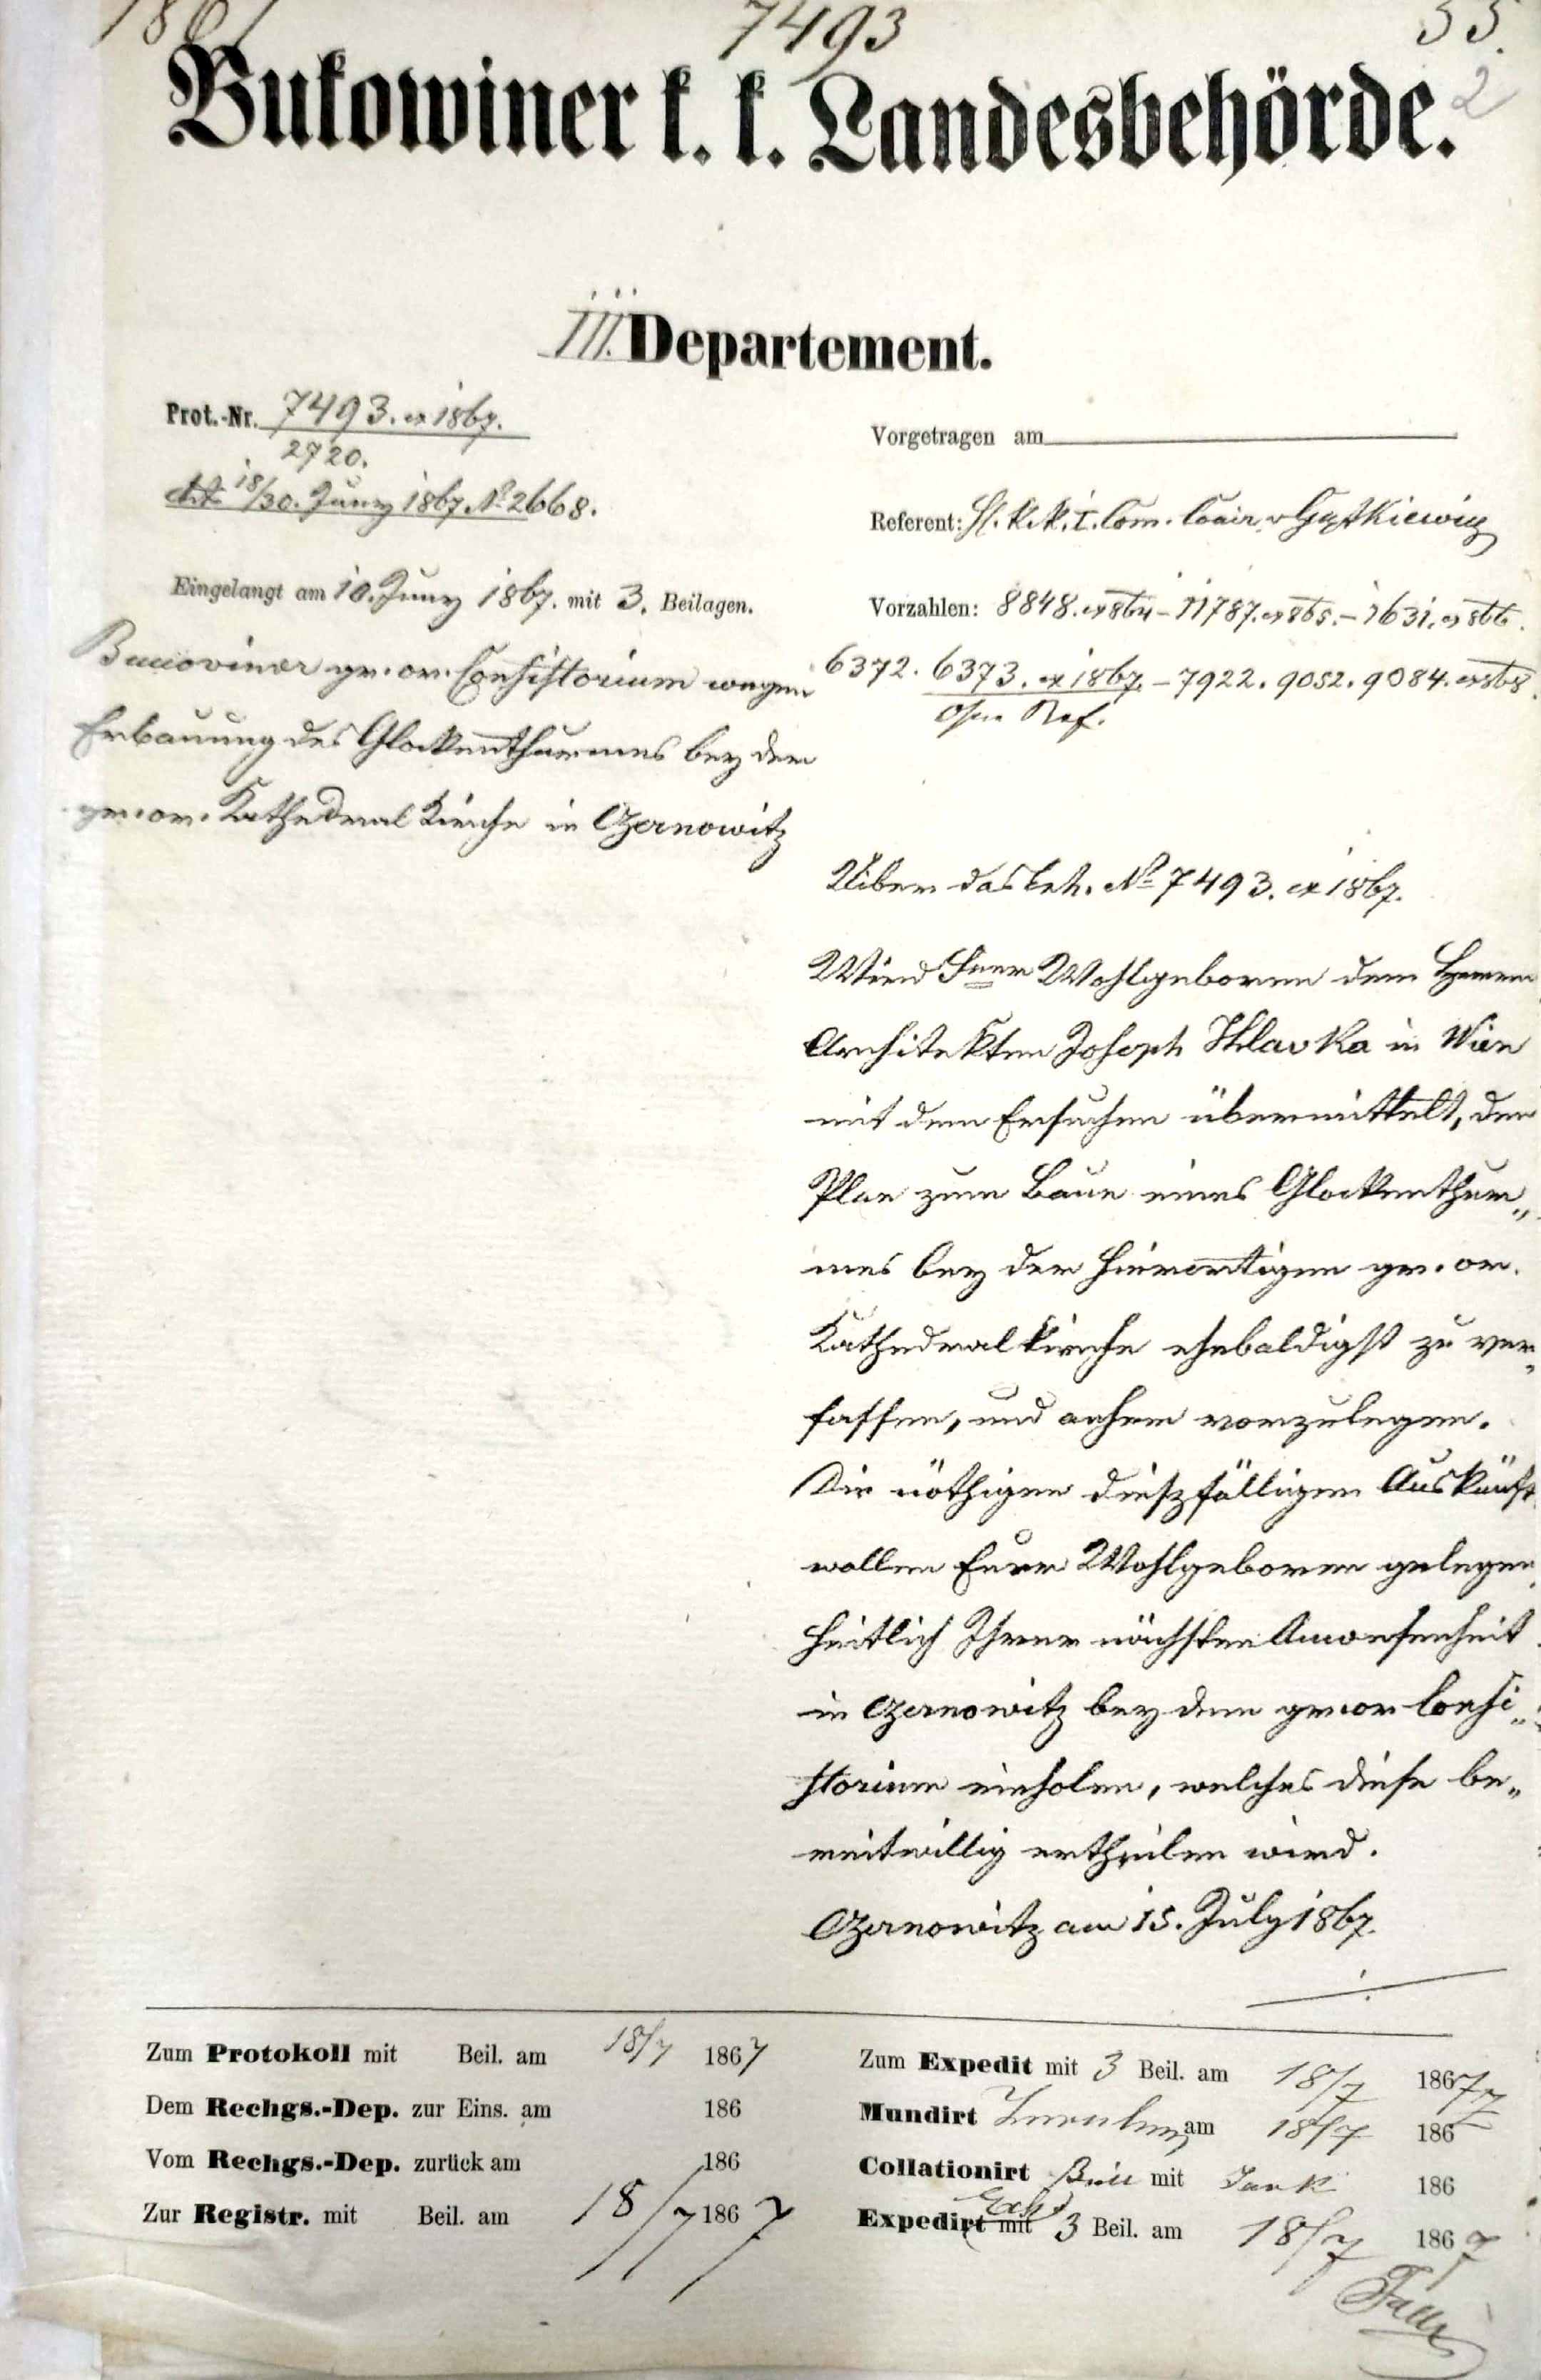 1867
7493
55.
2
Bukowiner k. k. Landesbehörde.
III. Departement.
Prot.-Nr. 7493. ex 1867.
2720.
ddt 18/30. Juny 1867 No 2668.
Eingelangt am 10. Juny 1867. mit 3. Beilagen.
Bucoviner gr. or. Consistorium wegen
Erbauung des Glockenthurmes bey der
gr. or. Kathedral Kirche in Czernowitz
Vorgetragen am
Referent: H. k. k. I. Com. Coair v
Vorzahlen: 8848. ex 864 – 11787. ex 865. – 1631. ex 866.
6372. 6373. ex 1867. – 7922. 9052. 9084. ex 868.
Ref.
Uiber das Exh. No 7493. ex 1867.
Wird Euer Wohlgeboren dem Herrn
Architekten Joseph Hlavka in Wien
mit dem Ersuchen übermittelt, den
Plan zum Baue eines Glockenthur„
mes bey der hierortigen gr. or.
Kathedralkirche ehebaldigst zu ver„
fassen, und anher vorzulegen.
Die nöthigen dießfälligen Auskünft
wollen Euer Wohlgeboren gelegen
heitlich Ihrer nächsten Anwesenheit
in Czernowitz bey dem gr. or Consi„
storium einholen, welches diese be„
reitwillig ertheilen wird.
Czernowitz am 15. July 1867.
Zum Protokoll mit Beil. am 18/7 1867
Dem Rechgs.-Dep. zur Eins. am 186
Vom Rechgs.-Dep. zurück am 186
Zur Registr. mit Beil. am 18/7 1867
Zum Expedit mit 3 Beil. am 18/7 1867
Mundirt am 18/7 1867
Collationirt mit 186
Expedirt mit 3 Beil. am 18/7 1867